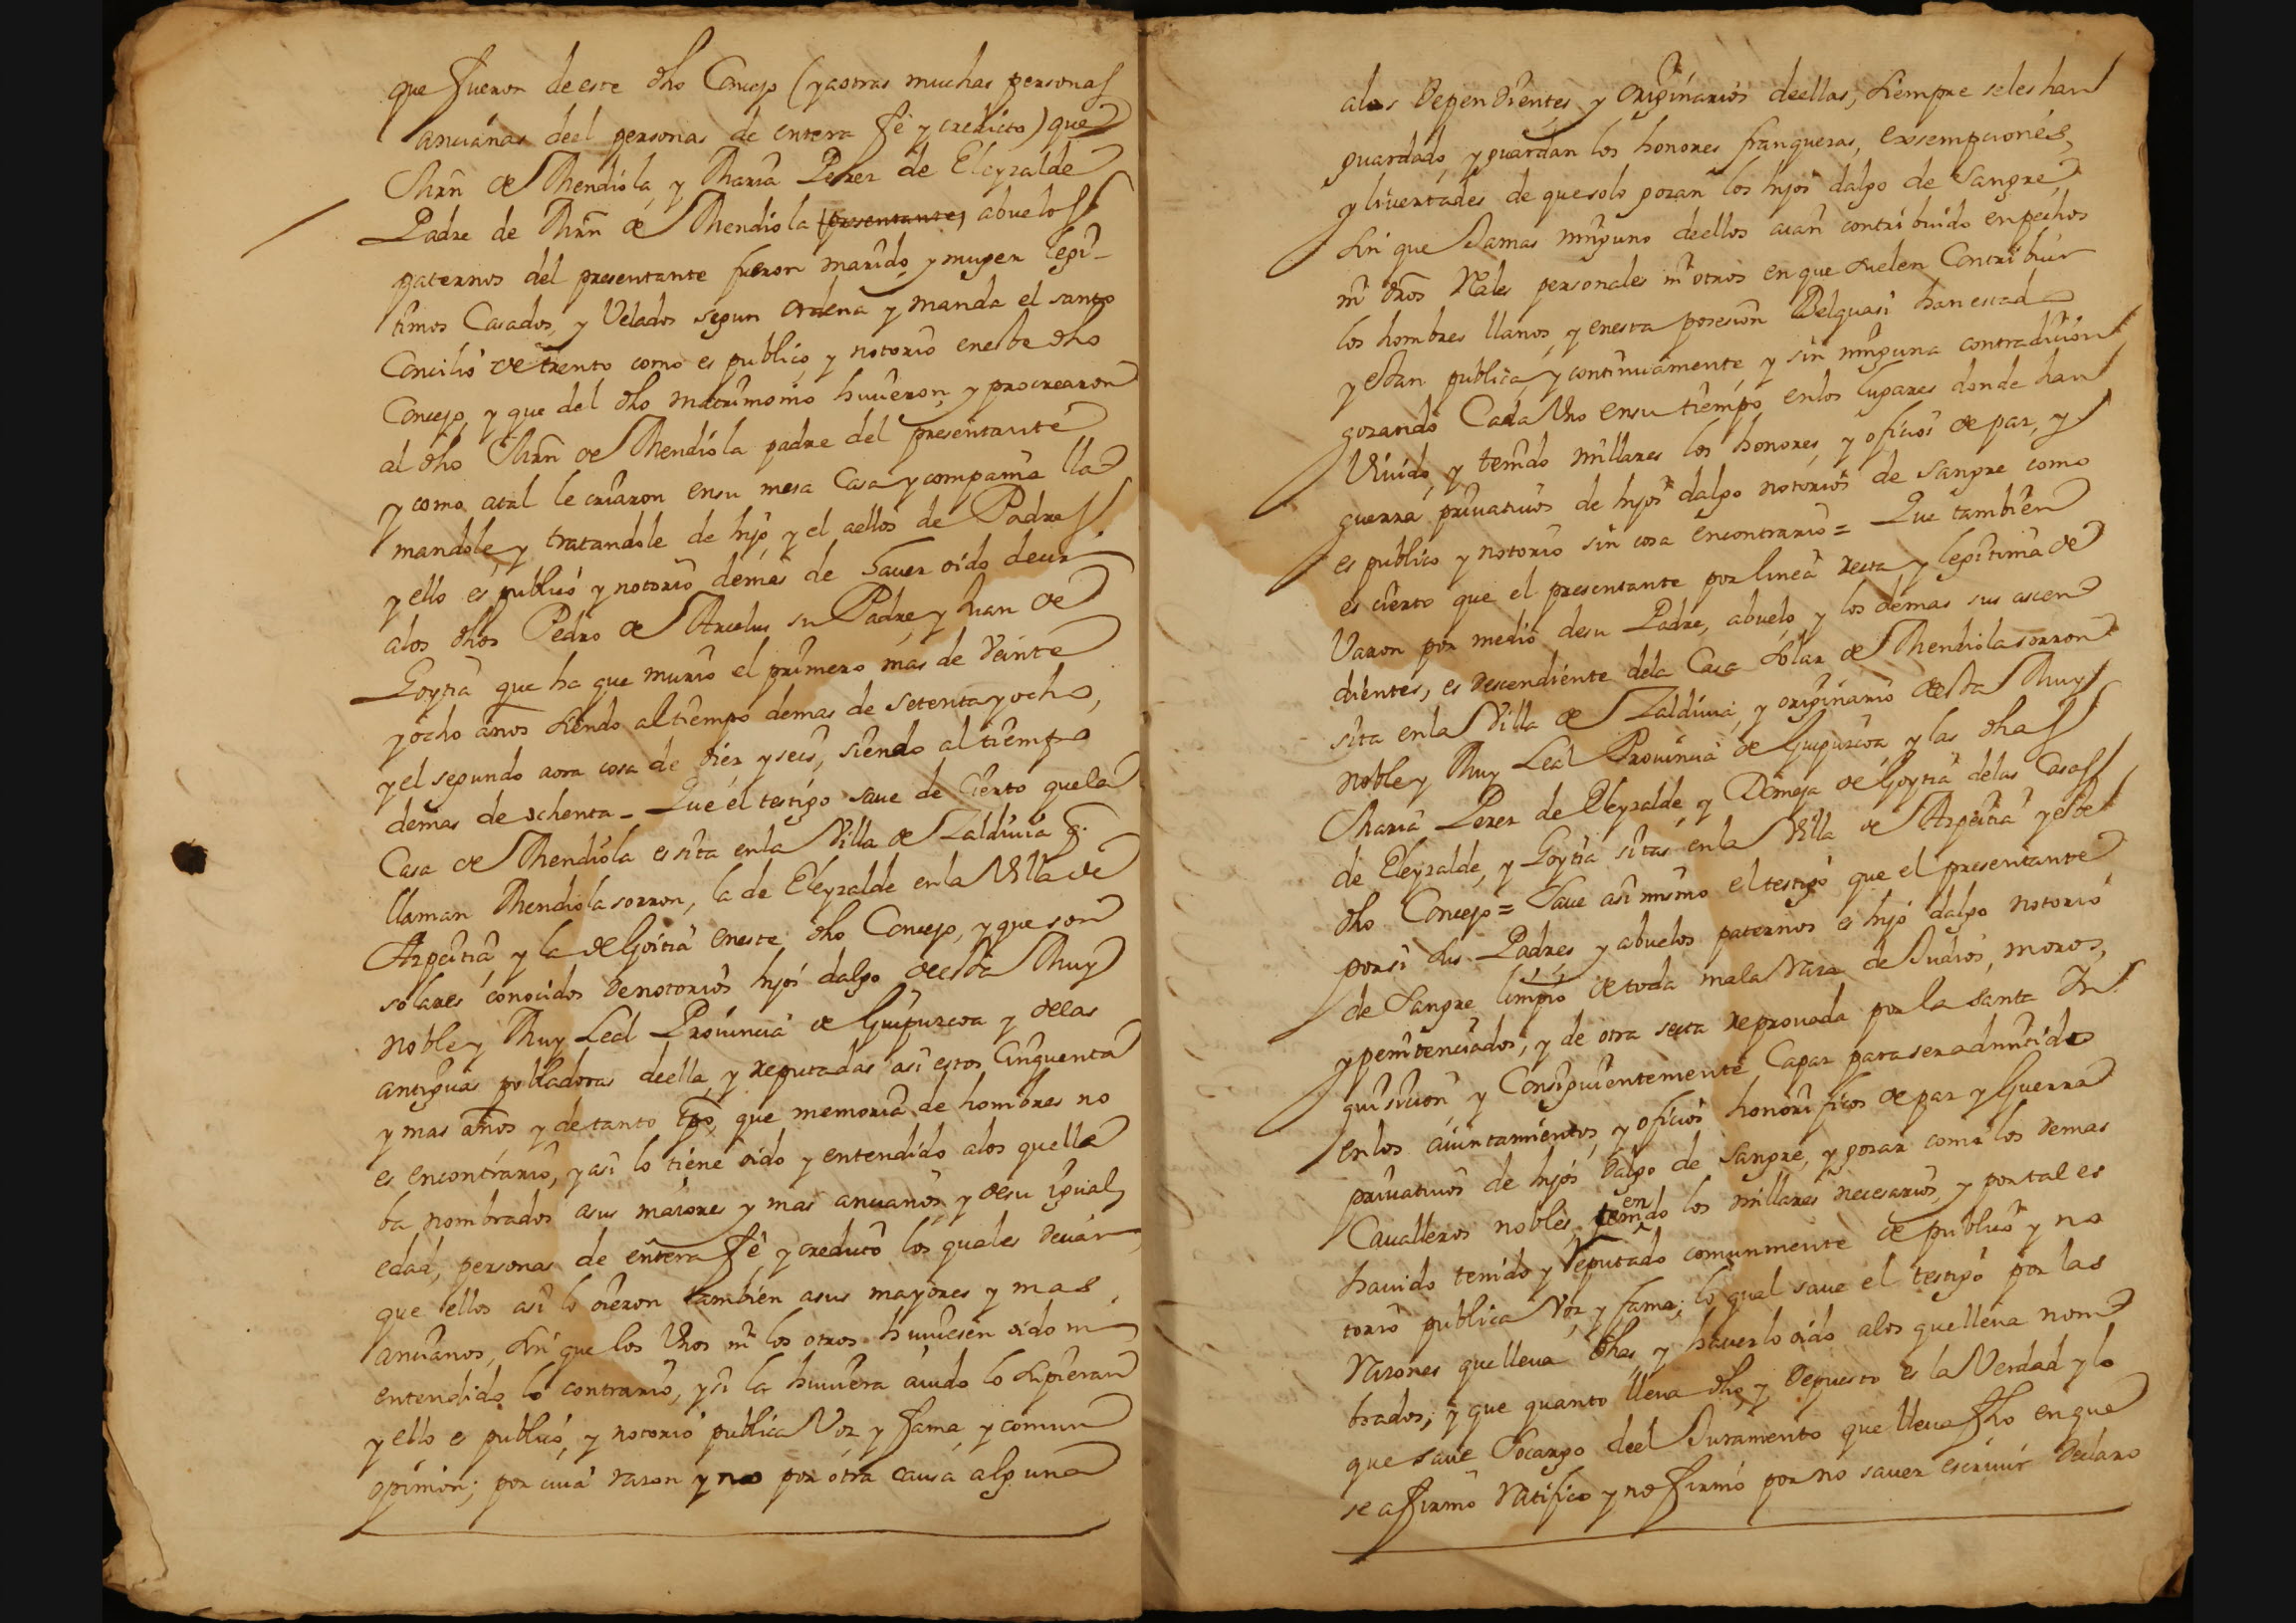 que fueron de este dho Concejo (y a otras muchas personas
ancianas deel personas de entera fe y credicto) que
Mrn de Mendiola y Maria Perez de Eleyzalde
Padre de Mrn de Mendiola (presentante) abuelos
paternos del presentante fueron marido y muger legi-
timos Casados, y Velados segun ordena y manda el santo
Concilio de trento como es publico y notorio en este dho
Concejo, y que del dho matrimonio huvieron y procrearon
al dho Mrn de Mendiola padre del presentante
y como atal le criaron en su mesa Casa y compañia lla
mandole, y tratandole de hijo, y el aellos de Padres
y ello es publico y notorio demas de haver oido decir
alos dhos Pedro de Arcelus su Padre y Juan de
Goytia que ha que murio el primero mas de Veinte
y ocho años siendo altiempo demas de setenta y ocho,
y el segundo aora cosa de diez y seis, siendo al tiempo
demas de ochenta - Que el testigo save de Cierto que la
Casa de Mendiola es sita en la Villa de Zaldivia q.
llaman Mendiola sorron, la de Eleyzalde en la Villa de
Azpeitia y la de Goitia en este dho Concejo, y que son
solares conocidos de notorios hijos dalgo de esta Muy
noble y Muy Leal Provincia de Guipuzcoa y delas
antiguas pobladoras deella, y reputadas asi estos Cinquenta
y mas años y de tanto tpo, que memoria de hombres no
es encontrario, y asi lo tiene oido y entendido alos que lle
ba nombrados asus maiores y mas ancianos y de su igual
edad, personas de entera fe y credicto los quales decian
que ellos asi lo oieron tambien asus mayores y mas
ancianos, sin que los Unos ni los otros huviesen oido ni
entendido lo contrario, y si la huviera avido lo supieran
y ello es publico, y notorio publica Voz y fama, y comun
opinion; por cuia razon y no por otra causa alguna
alos Dependientes, y Originarios deellas, siempre seles han
guardado, y guardan los honores franquezas, exsempciones,
y livertades de que solo gozan los hijos dalgo de Sangre,
sin que Jamas ninguno deellos aian contribuido en pechos
ni dros Rales personales ni otros en que suelen Contribuir
los hombres llanos, y en esta posesion Velquasi han estado
y estan publica, y continuamente y sin ninguna contradicion
gozando Cada Uno en su tiempo, en los lugares donde han
Vivido, y tenido millares los honores, y oficios de paz, y
guerra privativos de hijos dalgo notorios de Sangre como
es publico y notorio sin cosa encontrario = Que tambien
es cierto que el presentante por linea recta y legitima de
Varon por medio de su Padre, abuelo, y los demas sus ascen
dientes, es descendiente dela Casa Solar de Mendiola sorron
sita en la Villa de Zaldivia, y originario de esta Muy
noble y Muy Leal Provincia de Guipuzcoa y las dhas
Maria Perez de Eleyzalde, y Domeja de Goytia delas Casas
de Eleyzalde, y Goytia sitas en la Villa de Azpeitia y este
dho Concejo = Save asi mismo el testigo que el presentante
por si sus Padres y abuelos paternos es hijo dalgo notorio
de Sangre limpio de toda mala Raza de Judios, moros,
y penitenciados, y de otra secta reprovada por la Santa In
quisicion y Consiguientemente Capaz para ser admitido
en los aiuntamientos, y oficios honorificos de paz y Guerra
privativos de hijos dalgo de Sangre, y gozar como los demas
Cavalleros nobles, teniendo los millares necesarios, y por tal es
havido tenido y Reputado comunmente de publico y no
torio publica Voz, y fama; lo qual save el testigo por las
Razones que lleva dhas, y haverlo oido alos que lleva nom
brados; y que quanto lleva dho, y Depuesto es la Verdad y lo
que save socargo deel Juramento que lleva fho en que
se afirmo Ratifico y no firmo por no saver escrivir Declaro